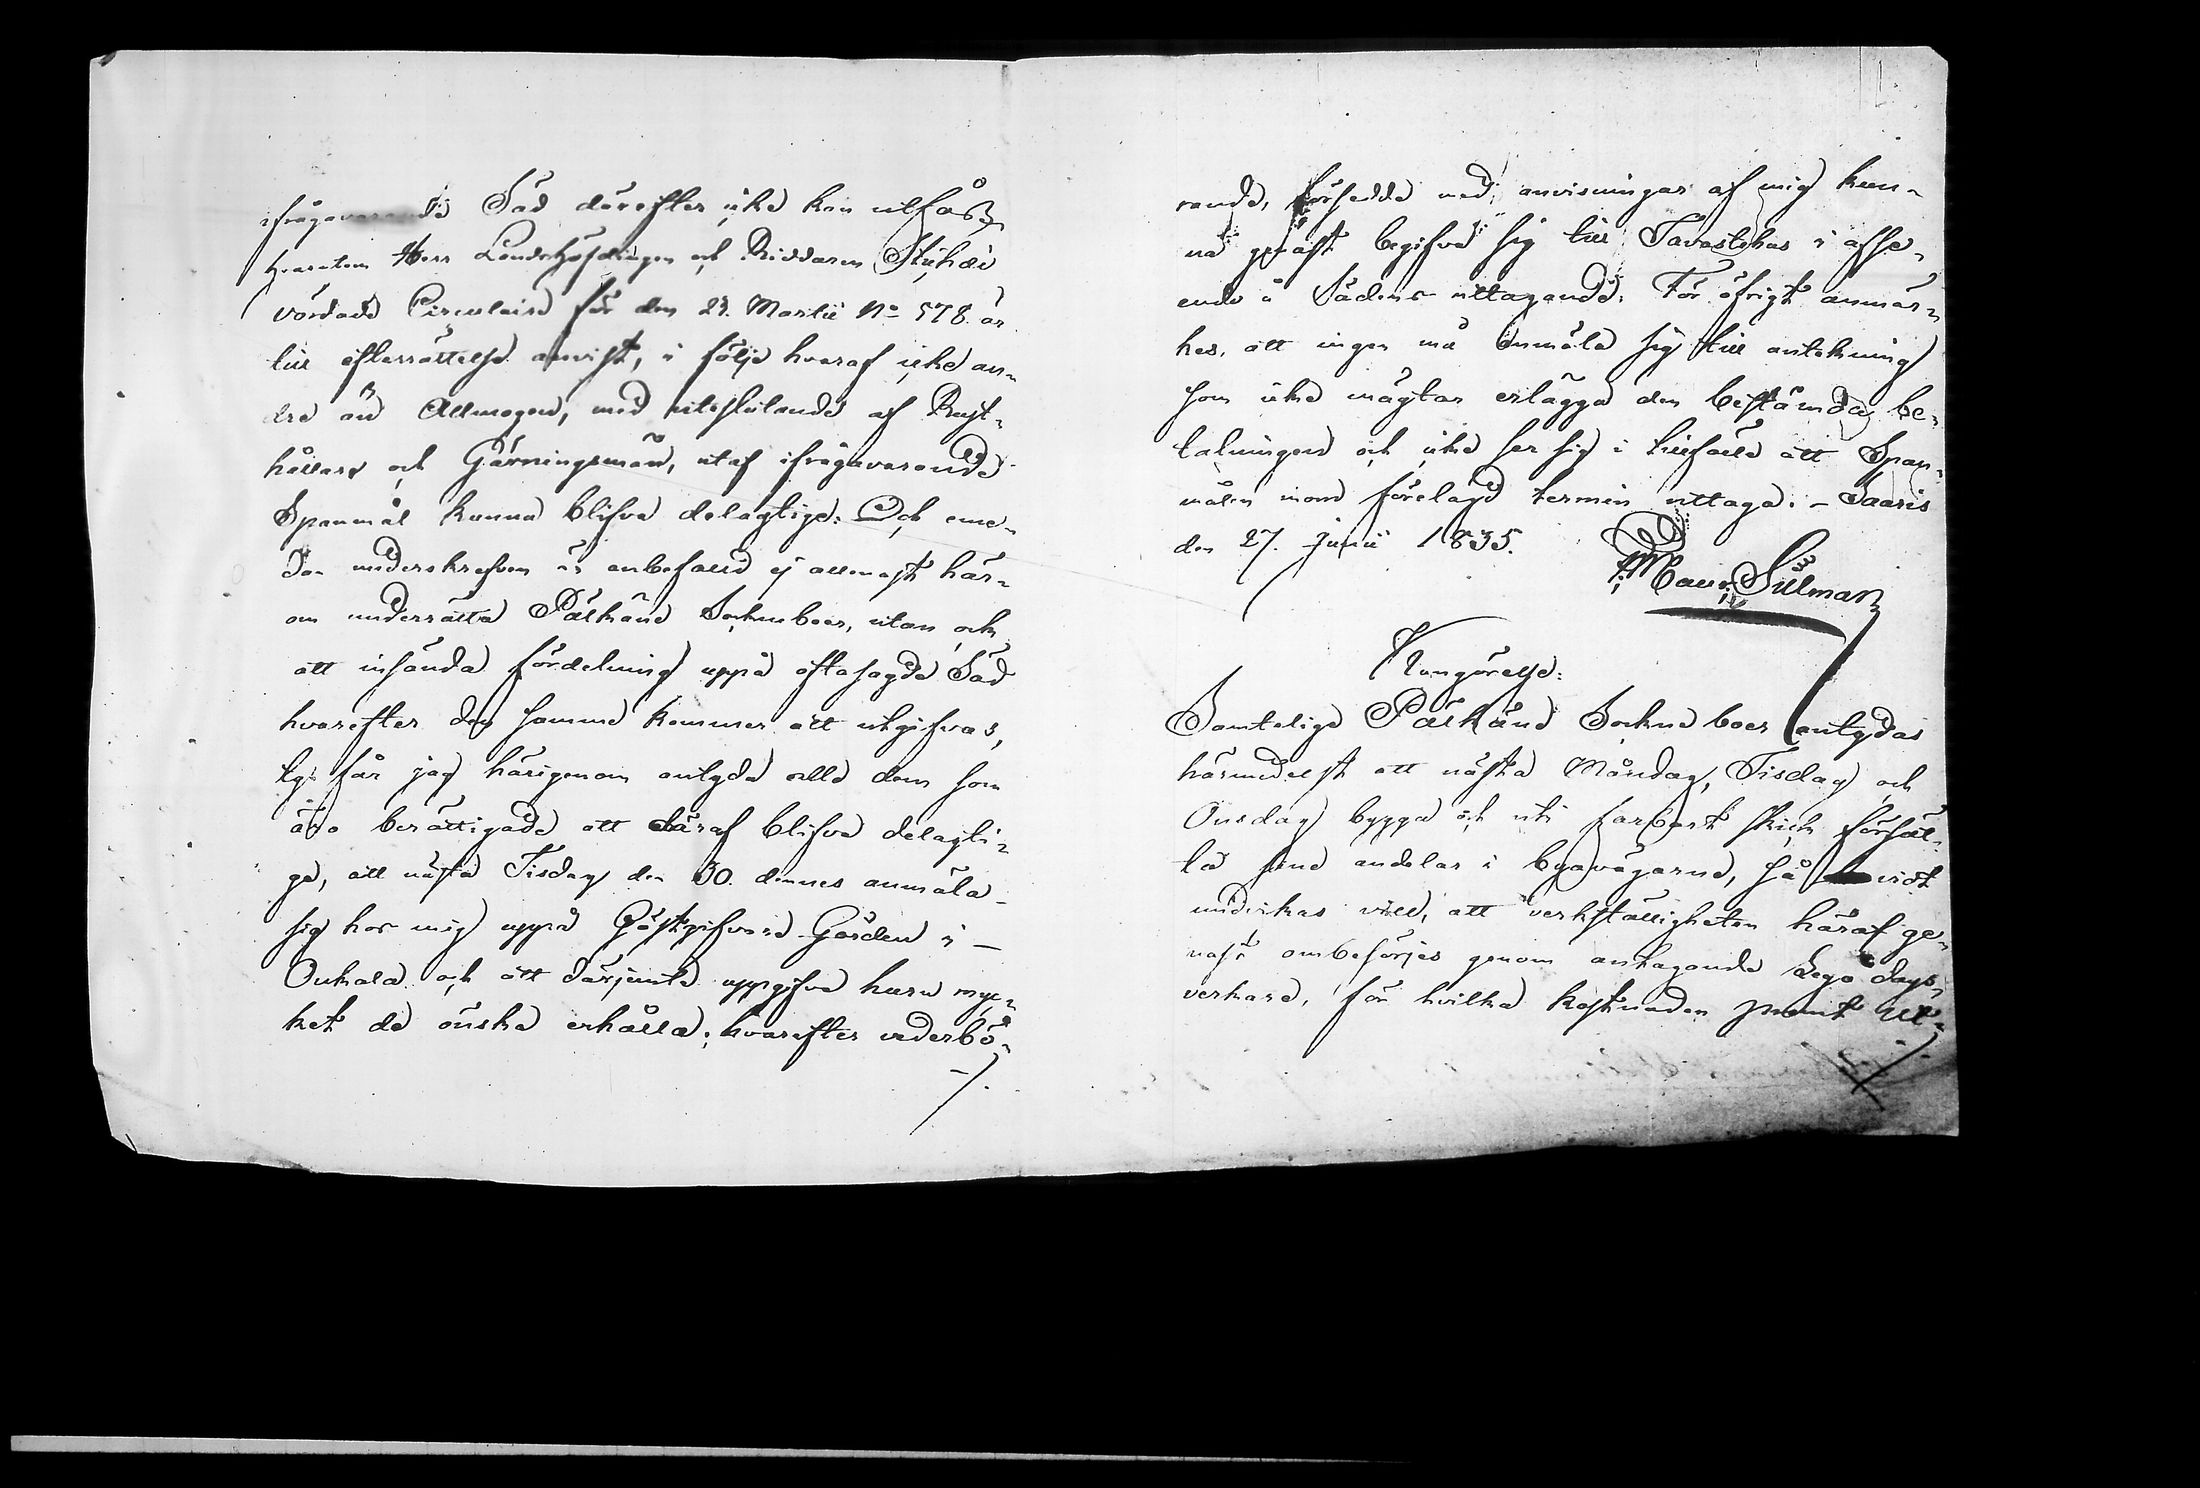 ifrågavarande Säd därefter icke kan utfås,
hvarutom Herr Landshöfdingen och Riddaren
vördade Circulaire för den 23. Martii No 578. är
till efterrättelse anvist, i följe hvaraf icke an-
dre än Allmogen, med uteslutande af Rust-
hållare och Gärningsmän, utaf ifrågavarande
Spanmål kunna blifva delagtige. Och eme-
dan underskrefven är anbefalld ej allenast här-
om underrätta Pälkäne Sockneboer, utan och
att insända fördelning uppå oftasagde Säd
hvarefter den samma kommer att utgifvas,
ty får jag härigenom antyda alla dem som
äro berättigade att däraf blifva delagti-
ge, att nästa Tisdag den 30. dennes anmäla
sig hos mig uppå Gästgifvare Gården i
Onkala och att därjemte uppgifva huru myc-
ket de önska erhålla; hvarefter vederbö-
-/.
rande, försedde med anvisningar af mig kun-
na genast begifva sig till Tavastehus i affse-
ende å Sädens uttagande. För öfrigt anmär-
kes, att ingen må anmäla sig till antekning
som icke mägtar erlägga den bestämda be-
talningen och icke ser sig i tillfälle att Span-
målen inom förelagd termin uttaga. - Saaris
den 27. Junii 1835.
Maur: Sillman
Kungörelse:
Samtelige Pälkäne Sockne boer antydas
härmedelst att nästa Måndag, Tisdag och
Onsdag bygga och uti farbart skick förfäl-
la sine andelar i byavägarne, så vidt
undvikas vill, att verkställigheten häraf ge-
nast ombesörjes genom antagande Lego dags-
verkare, för hvilka kostnaden promt ut-
./.